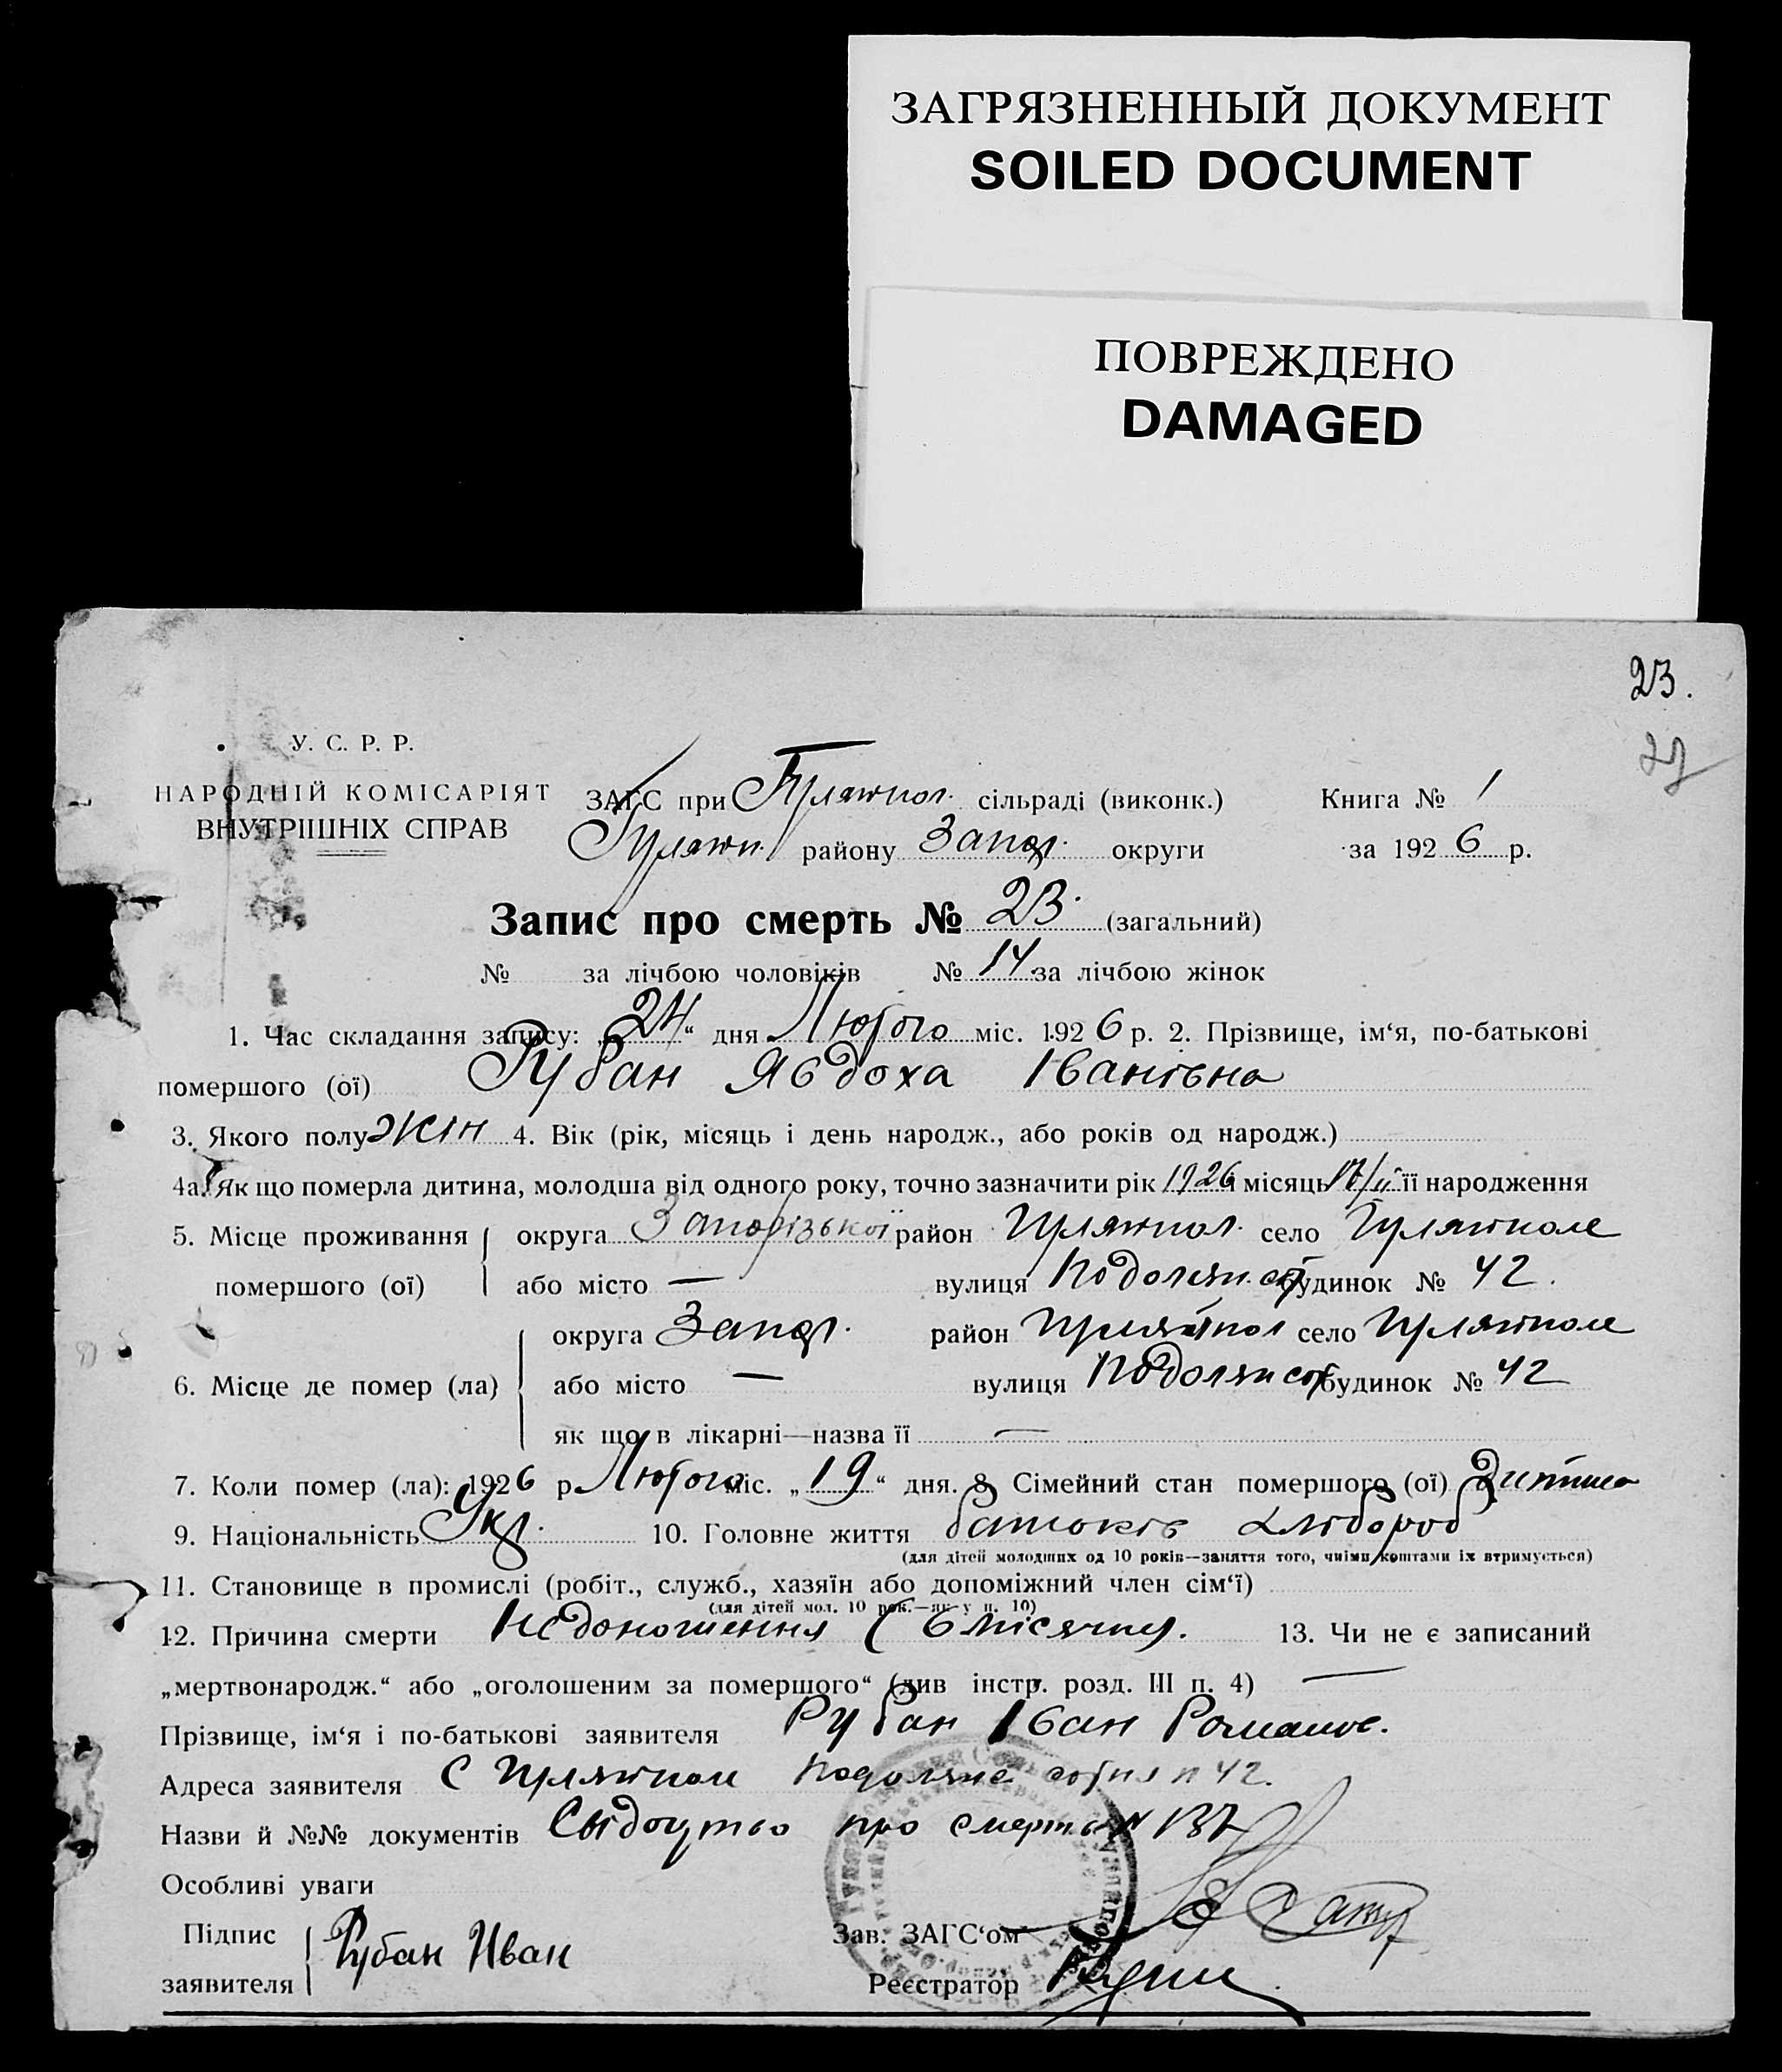 ЗАГРЯЗНЕННЫЙ ДОКУМЕНТ
SOILED DOCUMENT
ПОВРЕЖДЕНО
DAMAGED
23.
27
У. С. Р. Р.
НАРОДНІЙ КОМІСАРІЯТ
ВНУТРІШНІХ СПРАВ
ЗАГС при Гуляйпол. сільраді (виконк.) Книга № 1
Гуляйп. району Запор. округи за 1926 р.
Запис про смерть № 23. (загальний)
№ за лічбою чоловіків № 14 за лічбою жінок
1. Час складання запису: „24“ дня Лютого міс. 1926 р. 2. Прізвище, ім‘я, по-батькові
помершого (ої) Рубан Явдоха Іванівна
3. Якого полу жін 4. Вік (рік, місяць і день народж., або років од народж.)
4а. Як що померла дитина, молодша від одного року, точно зазначити рік 1926 і місяць 17/II її народження
5. Місце проживання округа Запорізької район Гуляйпол. село Гуляйполе
помершого (ої) або місто — вулиця Подолян. сот будинок № 42.
округа Запор. район Гуляйпол село Гуляйполе
6. Місце де помер (ла) або місто — вулиця Подолян сот будинок № 42
як що в лікарні—назва її —
7. Коли помер (ла): 1926 р. Лютого міс. „19“ дня. 8. Сімейний стан помершого (ої) Дитина
9. Національність Укр. 10. Головне життя батьків хлібороб
(для дітей молодших од 10 років—заняття того, чиїми коштами їх втримується)
11. Становище в промислі (робіт., служб., хазяїн або допоміжний член сім‘ї)
(для дітей мол. 10 рок.—як у п. 10)
12. Причина смерти Недоношення (6 місячн). 13. Чи не є записаний
„мертвонародж.“ або „оголошеним за помершого“ (див інстр. розд. III п. 4) —
Прізвище, ім‘я і по-батькові заявителя Рубан Іван Романов.
Адреса заявителя С Гуляйполе Подолянс сотня № 42.
Назви й №№ документів про смерть № 137
Особливі уваги
Підпис Рубан Иван Зав. ЗАГС‘ом
заявителя Реєстратор